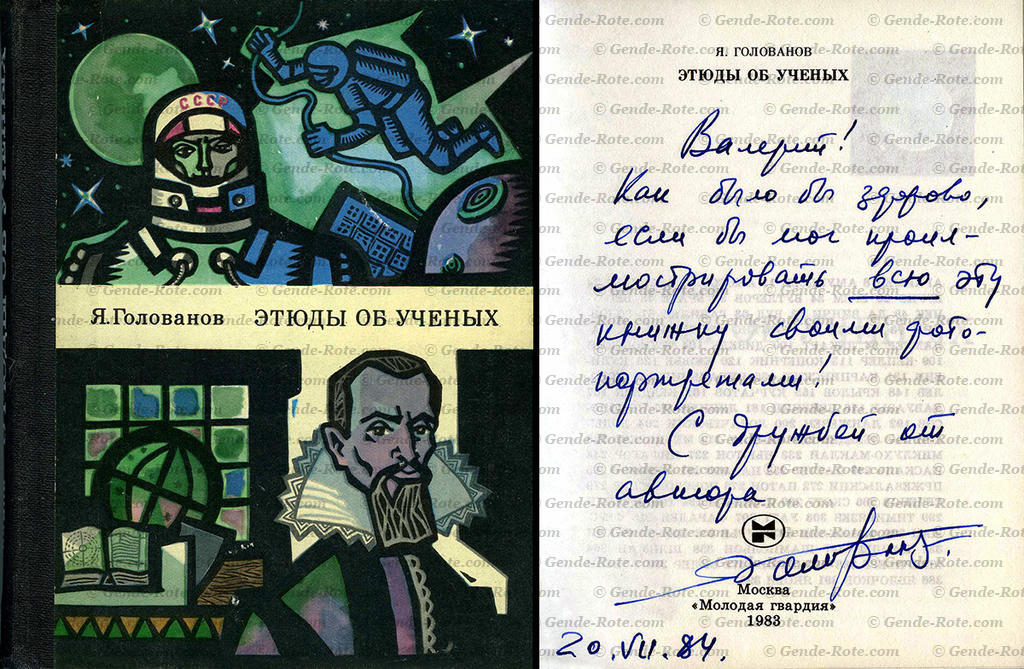 СССР
Я.Голованов ЭТЮДЫ ОБ УЧЕНЫХ
© Gende-Rote.com
Я. ГОЛОВАНОВ
ЭТЮДЫ ОБ УЧЕНЫХ
Валерий!
Как было бы здорово,
если бы мог проил-
люстрировать всю эту
книжку своими фото-
портретами!
С дружбой от
автора
Москва
«Молодая гвардия»
1983
20.VII.84.